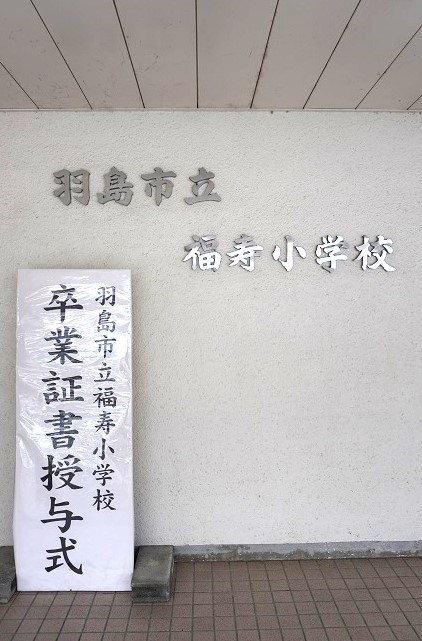 羽島市立
福寿小学校
羽島市立福寿小学校
卒業証書授与式